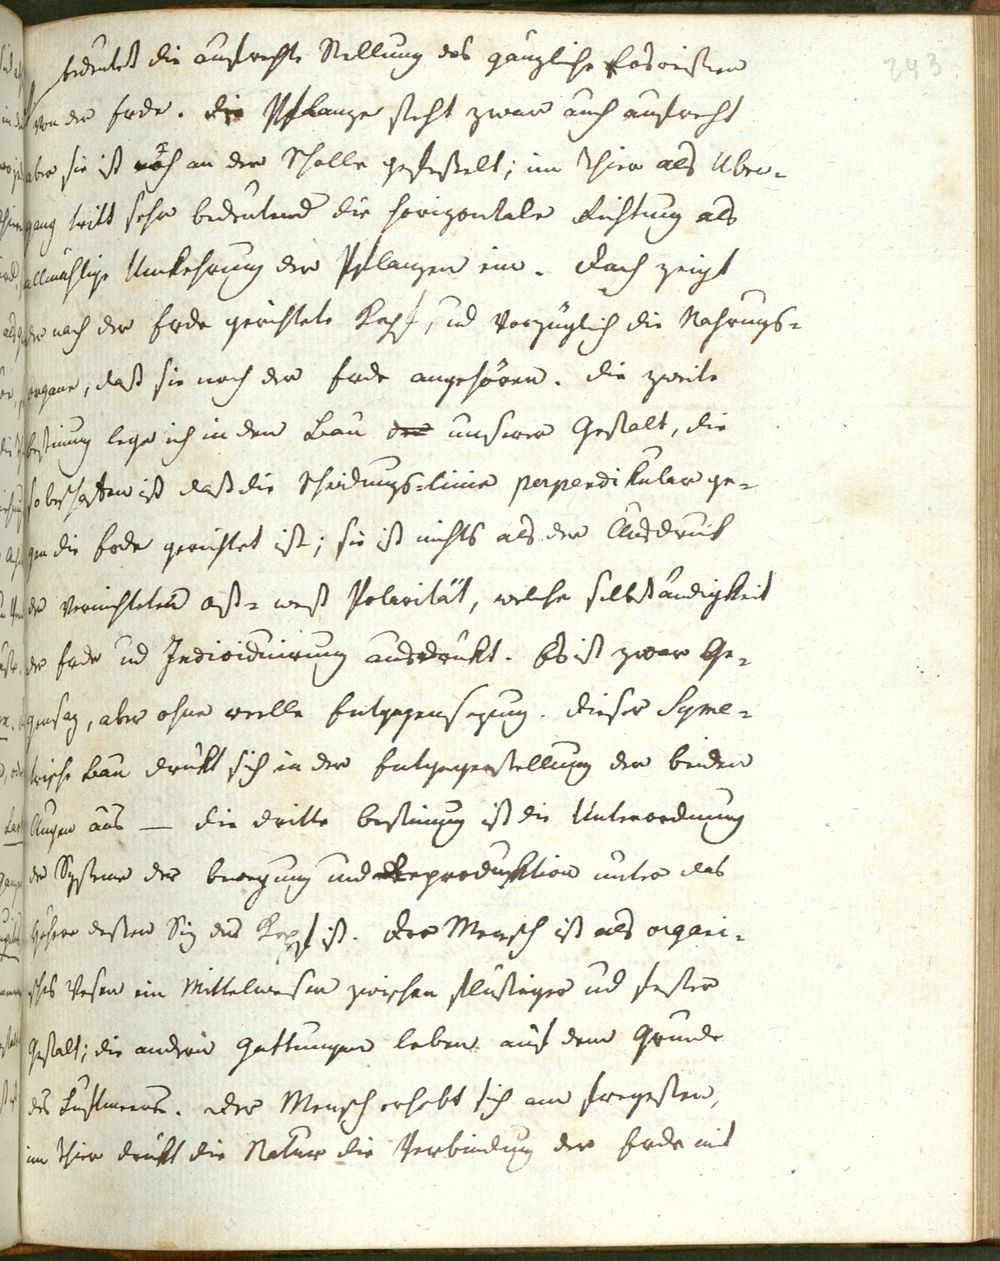 243
bedeutet die aufrechte Stellung das gänzliche Losreißen
von der Erde. die Pflanze steht zwar auch aufrecht
aber sie ist noch an der Scholle gefesselt; im Thier als Über-
gang tritt sehr bedeutend die horizontale Richtung als
allmählige Umkehrung der Pflanzen ein. Doch zeigt
der nach der Erde gerichtete Kopf, und vorzüglich die Nahrungs-
organe, daß sie noch der Erde angehören. die zweite
bestimung lege ich in den Bau der unsrer Gestalt, die
so beschaffen ist daß die Scheidungs-linie perpendikular ge-
gen die Erde gerichtet ist; sie ist nichts als der Ausdruck
der vernichteten ost- west Polarität, welche selbständigkeit
der Erde und Individuirung ausdrükt. Es ist zwar Ge-
gensaz, aber ohne reelle Entgegensezung. dieser Syme-
trische Bau drükt sich in der Entgegenstellung der beiden
Augen aus — die dritte bestimung ist die Unterordnung
der Systeme der bewegung und Reproduktion unter das
höhere dessen Siz der Kopf ist. Der Mensch ist als organi-
sches Wesen ein Mittelwesen zwischen flüssiger und fester
Gestalt; die andern Gattungen leben auf dem Grunde
des Luftmeers. Der Mensch erhebt sich am freyesten,
im Thier drükt die Natur die Verbindung der Erde mit